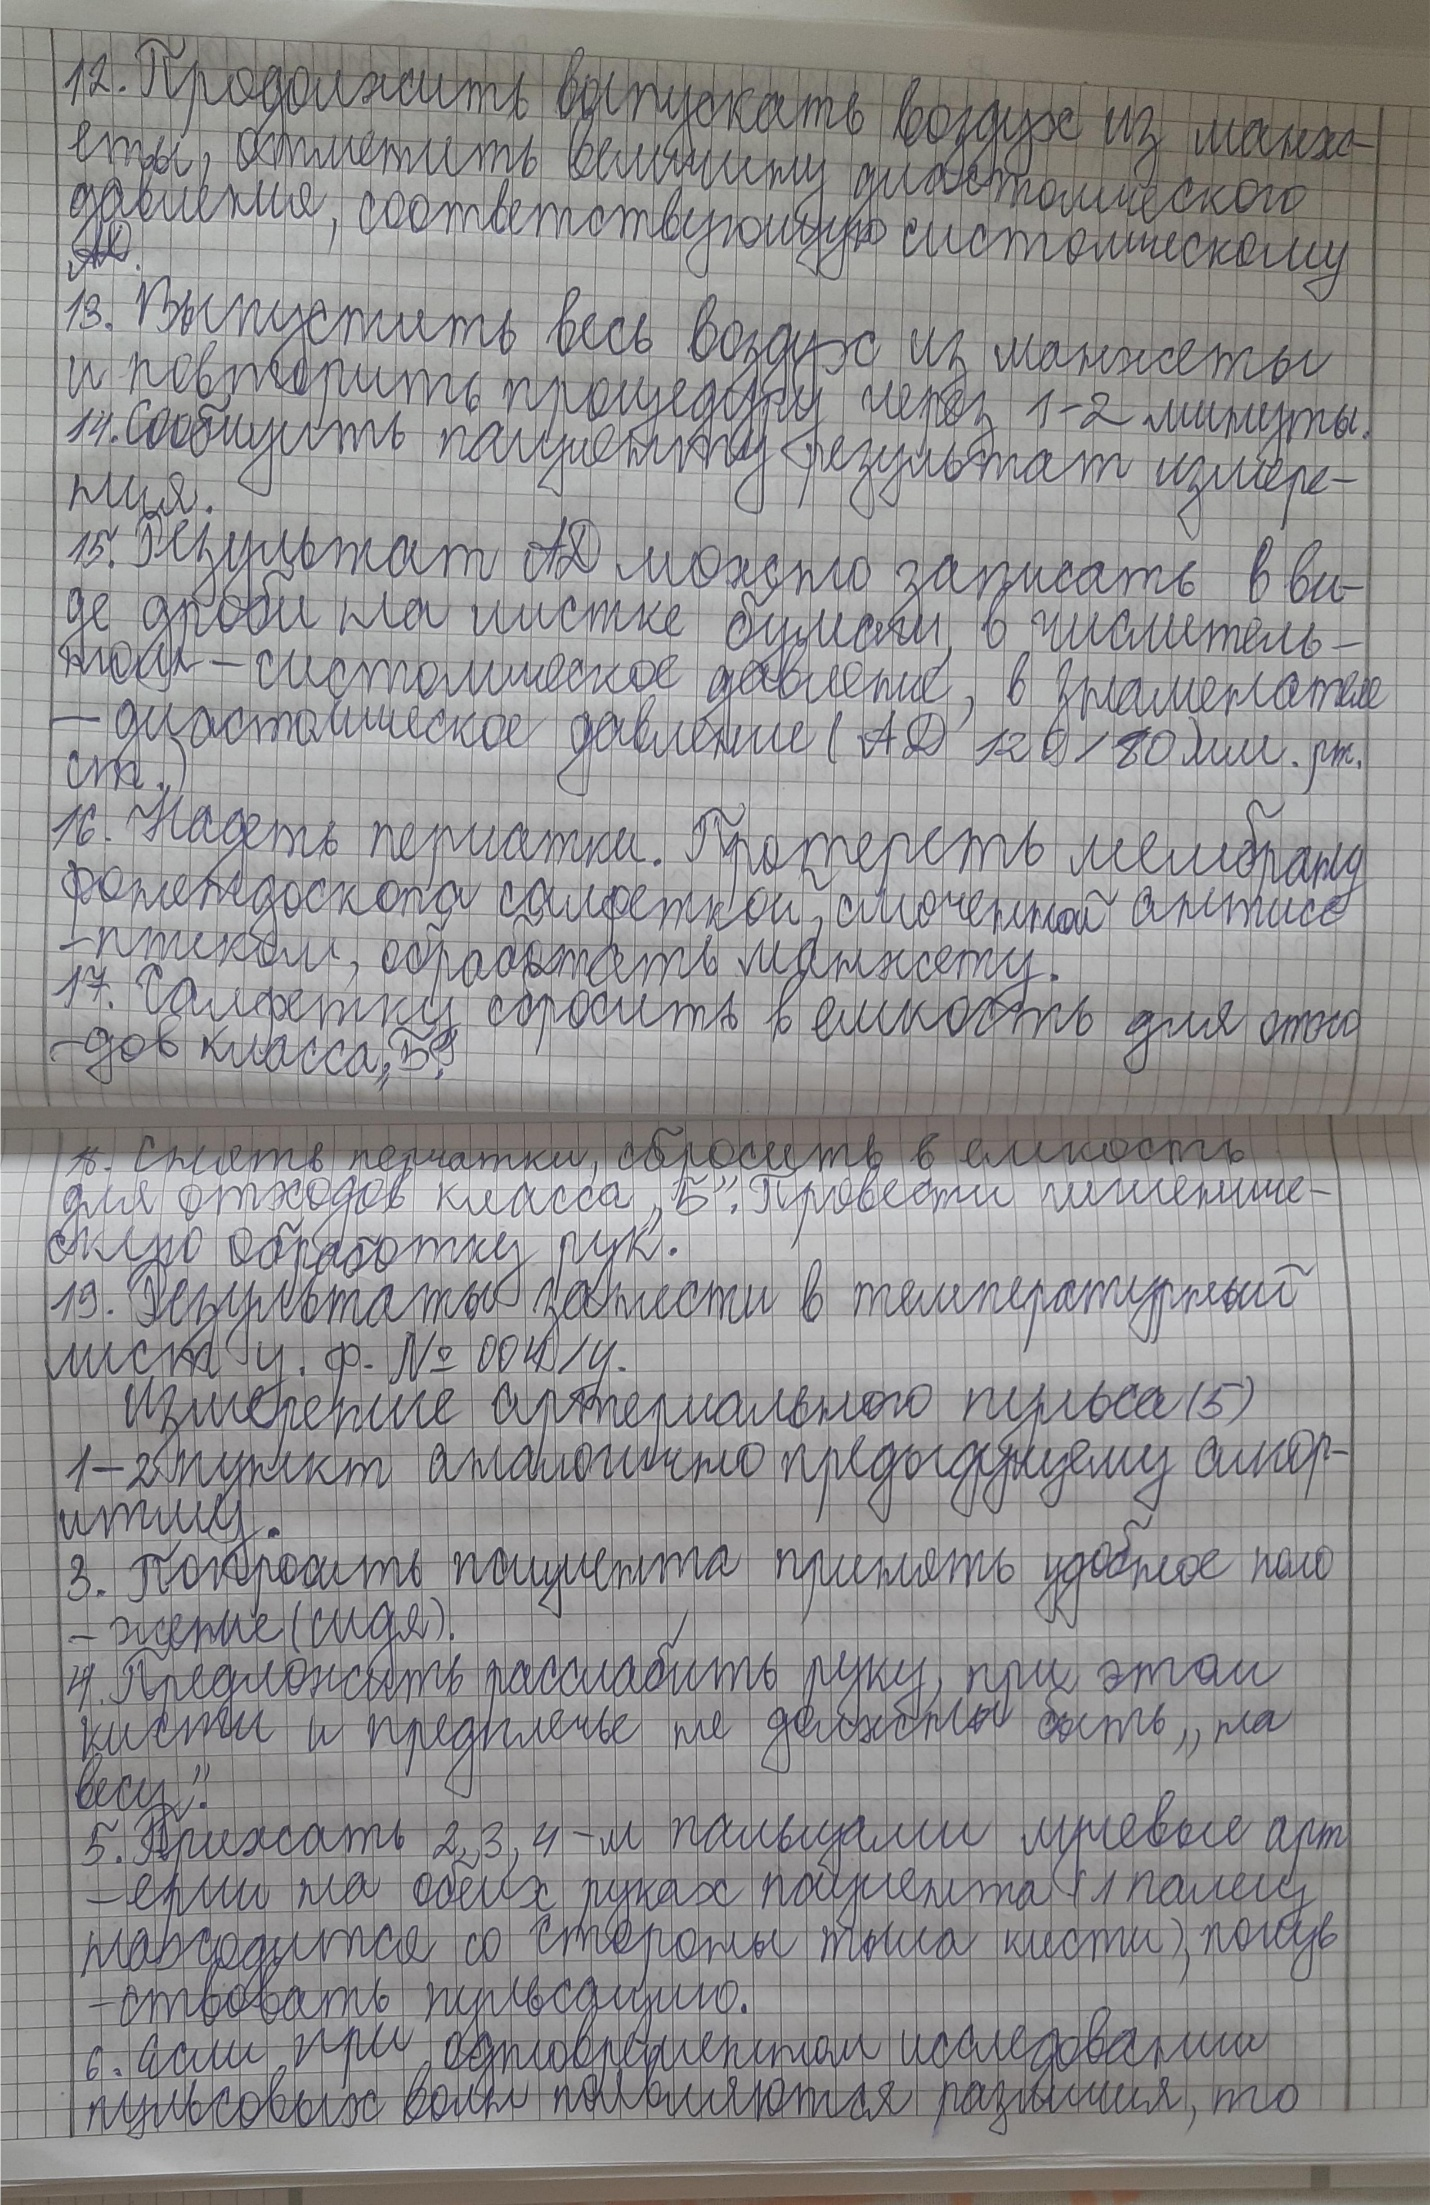 12. Продолжить выпускать воздух из манж-
еты, отметить величину диастолического
давления, соответствующую систолическому
АД.
13. Выпустить весь воздух из манжеты
и повторить процедуру через 1-2 минуты.
14. Сообщить пациенту результат измере-
ния.
15. Результат АД можно записать в ви-
де дроби на листке бумаги, в числитель-
ном - систолическое давление, в знаменателе
- диастолическое давление (АД 120/80 мм. рт.
ст.)
16. Надеть перчатки. Протереть мембрану
фонендоскопа салфеткой, смоченной антисе
-птиком, обработать манжету.
17. Салфетку сбросить в емкость для отхо
-дов класса „Б".
18. Снять перчатки, сбросить в емкость
для отходов класса „Б". Провести гигиениче-
скую обработку рук.
19. Результаты занести в температурный
лист у. ф. № 004/у.
Измерение артериального пульса (5)
1-2 пункт аналогично предыдущему алгор-
итму.
3. Попросить пациента принять удобное поло
- жение (сидя).
4. Предложить расслабить руку, при этом
кисти и предплечье не должны быть „на
весу".
5. Прижать 2,3,4-м пальцами лучевые арт
-ерии на обеих руках пациента (1 палец
находится со стороны тыла кисти), почув
-ствовать пульсацию.
6. Если при одновременном исследовании
пульсовых волн появляются различия, то